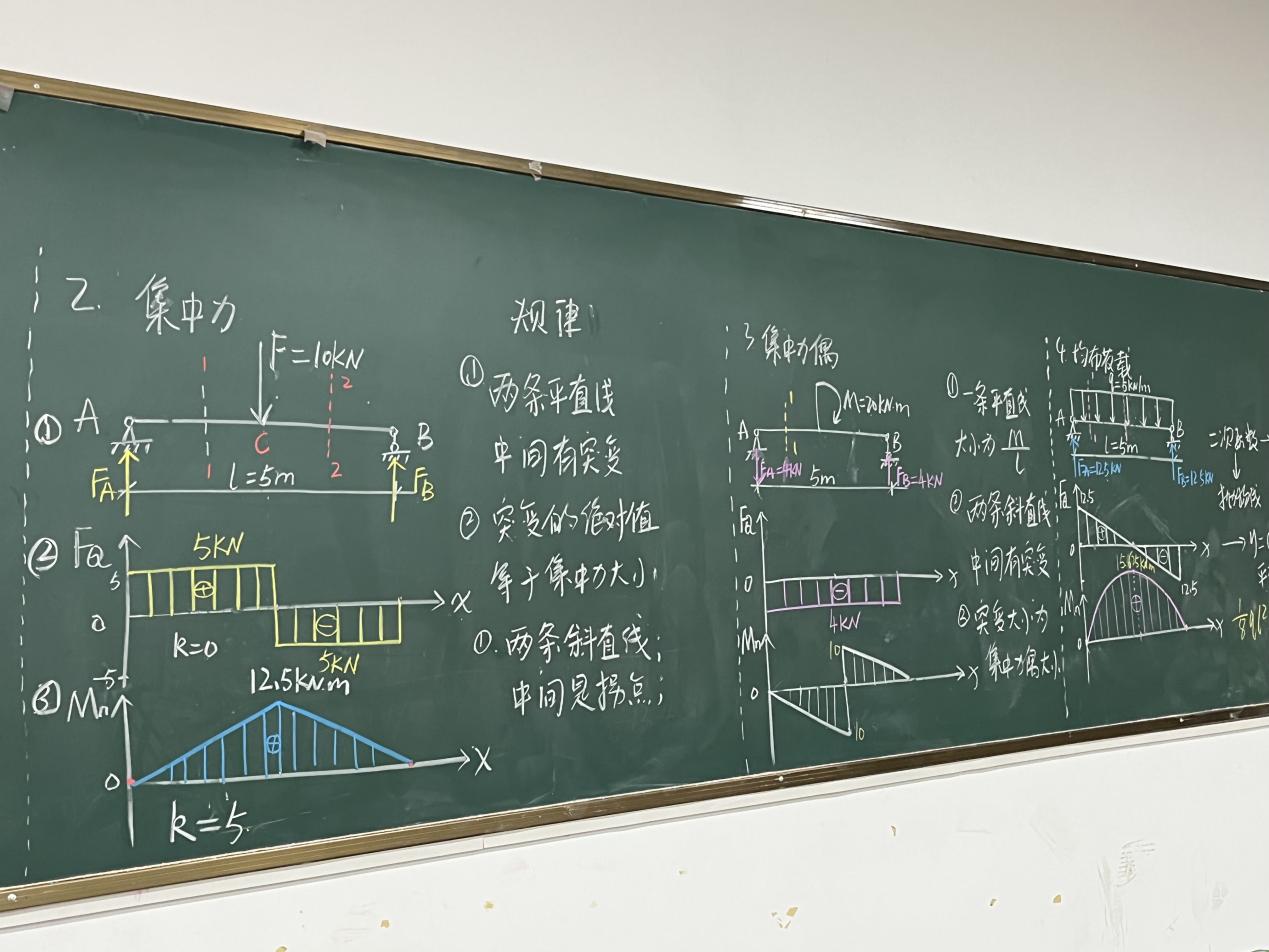 2. 集中力
F=10KN
1
2
① A
C
B
1
2
FA
l=5m
FB
② FQ
5KN
5
0
x
k=0
5KN
-5
12.5KN.m
③ Mn
0
x
k=5.
规律:
① 两条平直线
中间有突变
② 突变的绝对值
等于集中力大小.
①. 两条斜直线;
中间是拐点;
3 集中力偶
M=20KN.m
1
A
B
1
FA=4KN
FB=4KN
5m
FQ
0
x
4KN
Mn
10
0
x
10
① 一条平直线
大小为 M/l
② 两条斜直线
中间有突变
③ 突变大小为
集中力偶大小.
4. 均布荷载
q=5kn/m
A
B
l=5m
FA=12.5KN
FB=12.5KN
FQ
12.5
0
x
12.5
Mn
0
x
二次函数→
抛物线